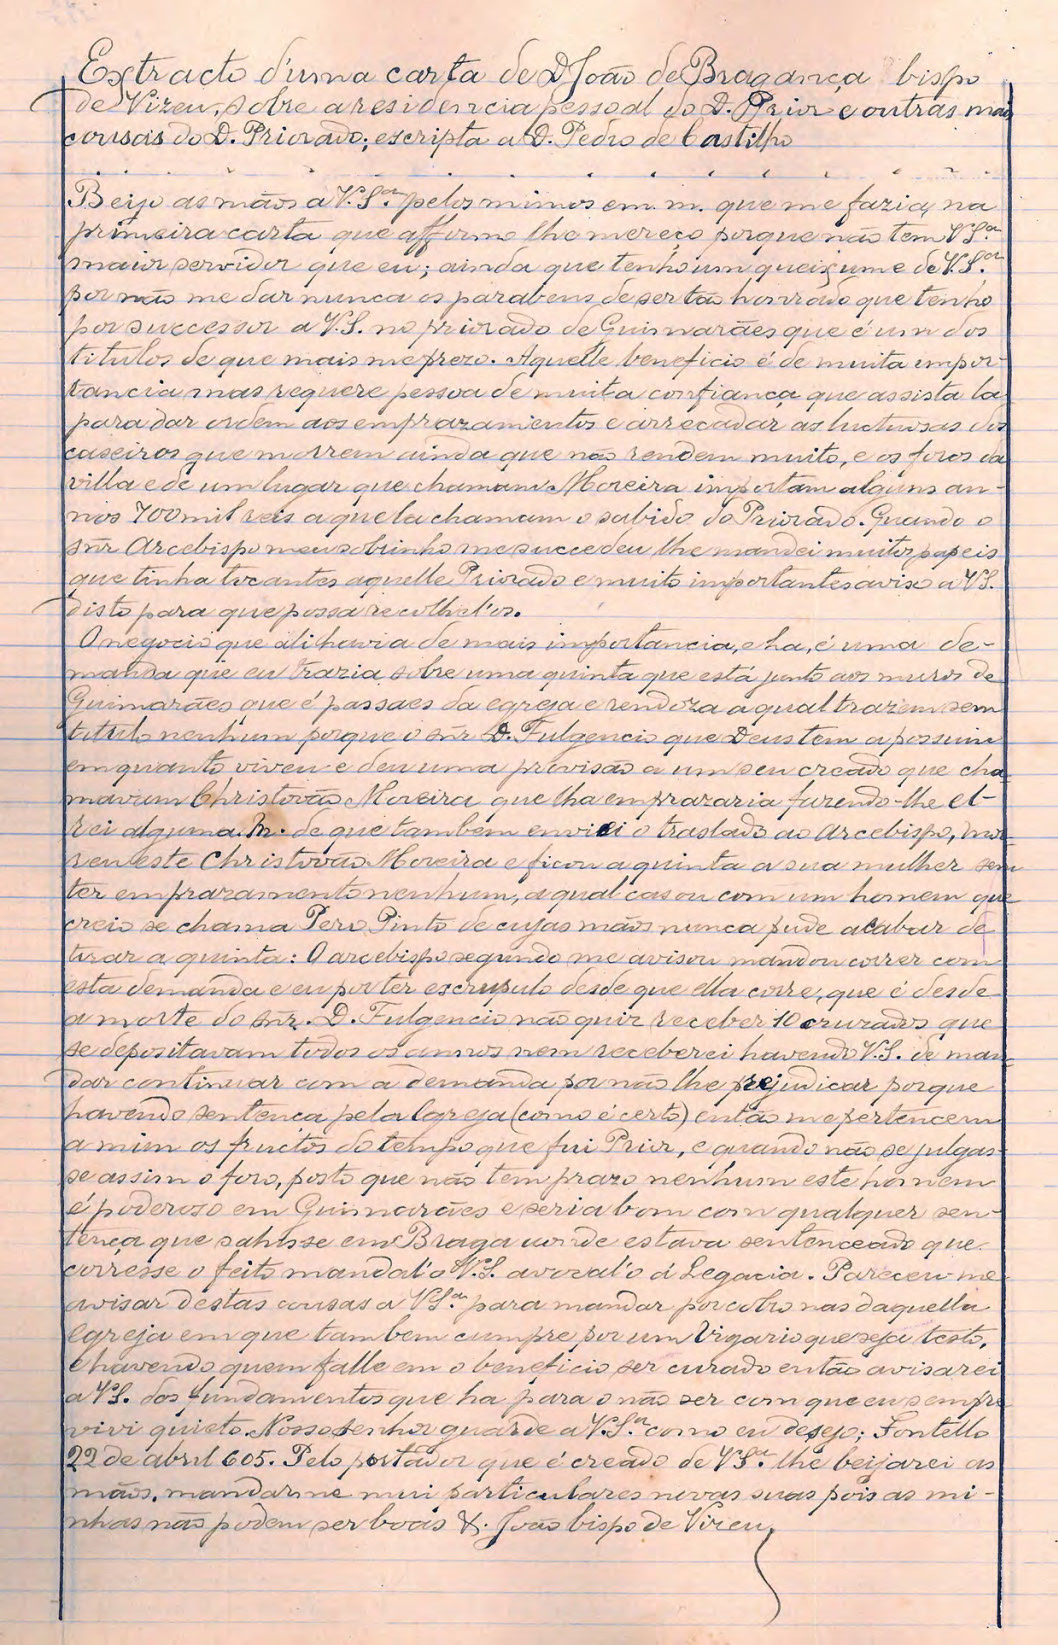 Extracto d'uma carta de D João de Bragança bispo
de Vizeu, sobre a residencia pessoal do D. Prior e outras mais
cousas do D. Priorado; escripta a D. Pedro de Castilho
Beijo as mãos a V. S.ª pelos mimos em m. que me fazia, na
primeira carta que affirmo lhe mereço porque não tem V S.ª
maior servidor que eu; ainda que tenho um queixume de V. S.ª
por não me dar nunca os parabens de ser tão honrado que tenho
por successor a V. S. no priorado de Guimarães que é um dos
titulos de que mais me prezo. Aquelle beneficio é de muita impor-
tancia mas requere pessoa de muita confiança que assista la
para dar ordem aos emprazamentos e arrecadar as luctuosas dos
caseiros que morrem ainda que não rendem muito, e os foros da
villa e de um lugar que chamam Moreira importam alguns an-
nos 700 mil reis a que la chamam o sabido do Priorado. Quando o
snr Arcebispo meu sobrinho me succedeu lhe mandei muitos papeis
que tinha tocantes aquelle Priorado e muito importantes aviso a V S.
disto para que possa recolhel'os.
O negocio que ali havia de mais importancia, e ha, é uma de-
manda que eu trazia sobre uma quinta que está junto aos muros de
Guimarães que é passaes da egreja e rendoza a qual trazem sem
titulo nenhum porque o snr D. Fulgencio que Deus tem a possuiu
emquanto viveu e deu uma provisão a um seu creado que cha-
mavam Christovão Moreira que lha emprazaria fazendo-lhe el-
rei alguma. M. de que tambem enviei o traslado ao Arcebispo, mor-
reu este Christovão Moreira e ficou a quinta a sua mulher sem
ter emprazamento nenhum, a qual casou com um homem que
creio se chama Pero Pinto de cujas mãos nunca pude acabar de
tirar a quinta: O arcebispo segundo me avisou mandou correr com
esta demanda e eu por ter escrupulo desde que ella corre, que é desde
a morte do snr. D. Fulgencio não quiz receber 10 cruzados que
se depositavam todos os annos nem receberei havendo V. S. de man-
dar continuar com a demanda por não lhe prejudicar porque
havendo sentença pela Egreja (como é certo) então me pertencem
a mim os fructos do tempo que fui Prior, e quando não se julgas-
se assim o foro, posto que não tem prazo nenhum este homem
é poderoso em Guimarães e seria bom com qualquer sen-
tença que sahisse em Braga aonde estava sentenceado que
corresse o feito mandal'o V. S. avocal'o á Legacia. Pareceu-me
avisar destas cousas a V S.ª para mandar por cobro nas daquella
Egreja em que tambem cumpre por um Vigario que seja testo,
e havendo quem falle em o beneficio ser curado então avisarei
a V S. dos fundamentos que ha para o não ser com que eu sempre
vivi quieto. Nosso senhor guarde a V. S.ª como eu desejo; Fontello
22 de abril 605. Pelo portador que é creado de V S.ª lhe beijarei as
mãos, mandar-me mui particulares novas suas pois as mi-
nhas não podem ser boas &. João bispo de Vizeu,